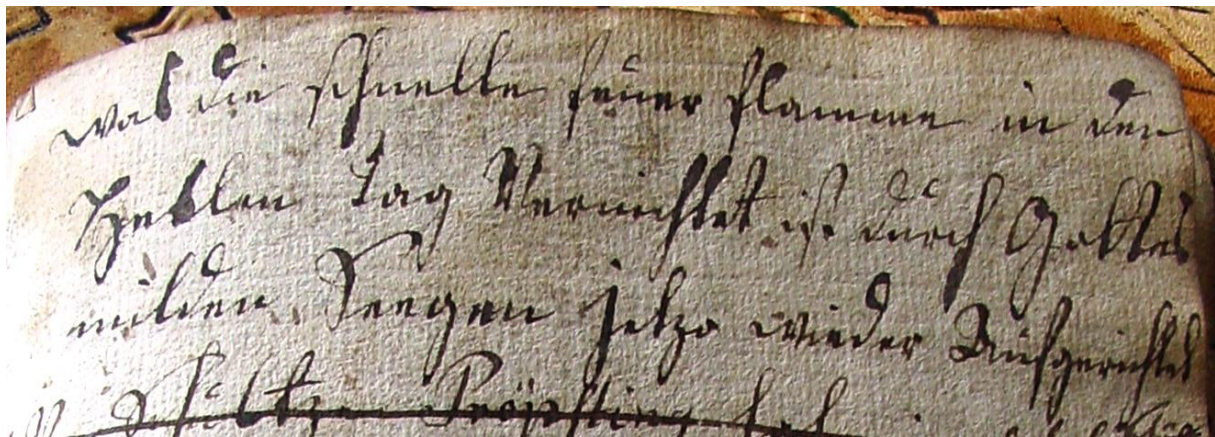 was die schnelle feuer flamme in den
Hellen tag Vernichtet ist durch Gottes
milden Seegen jetzo wieder Aufgerichtet